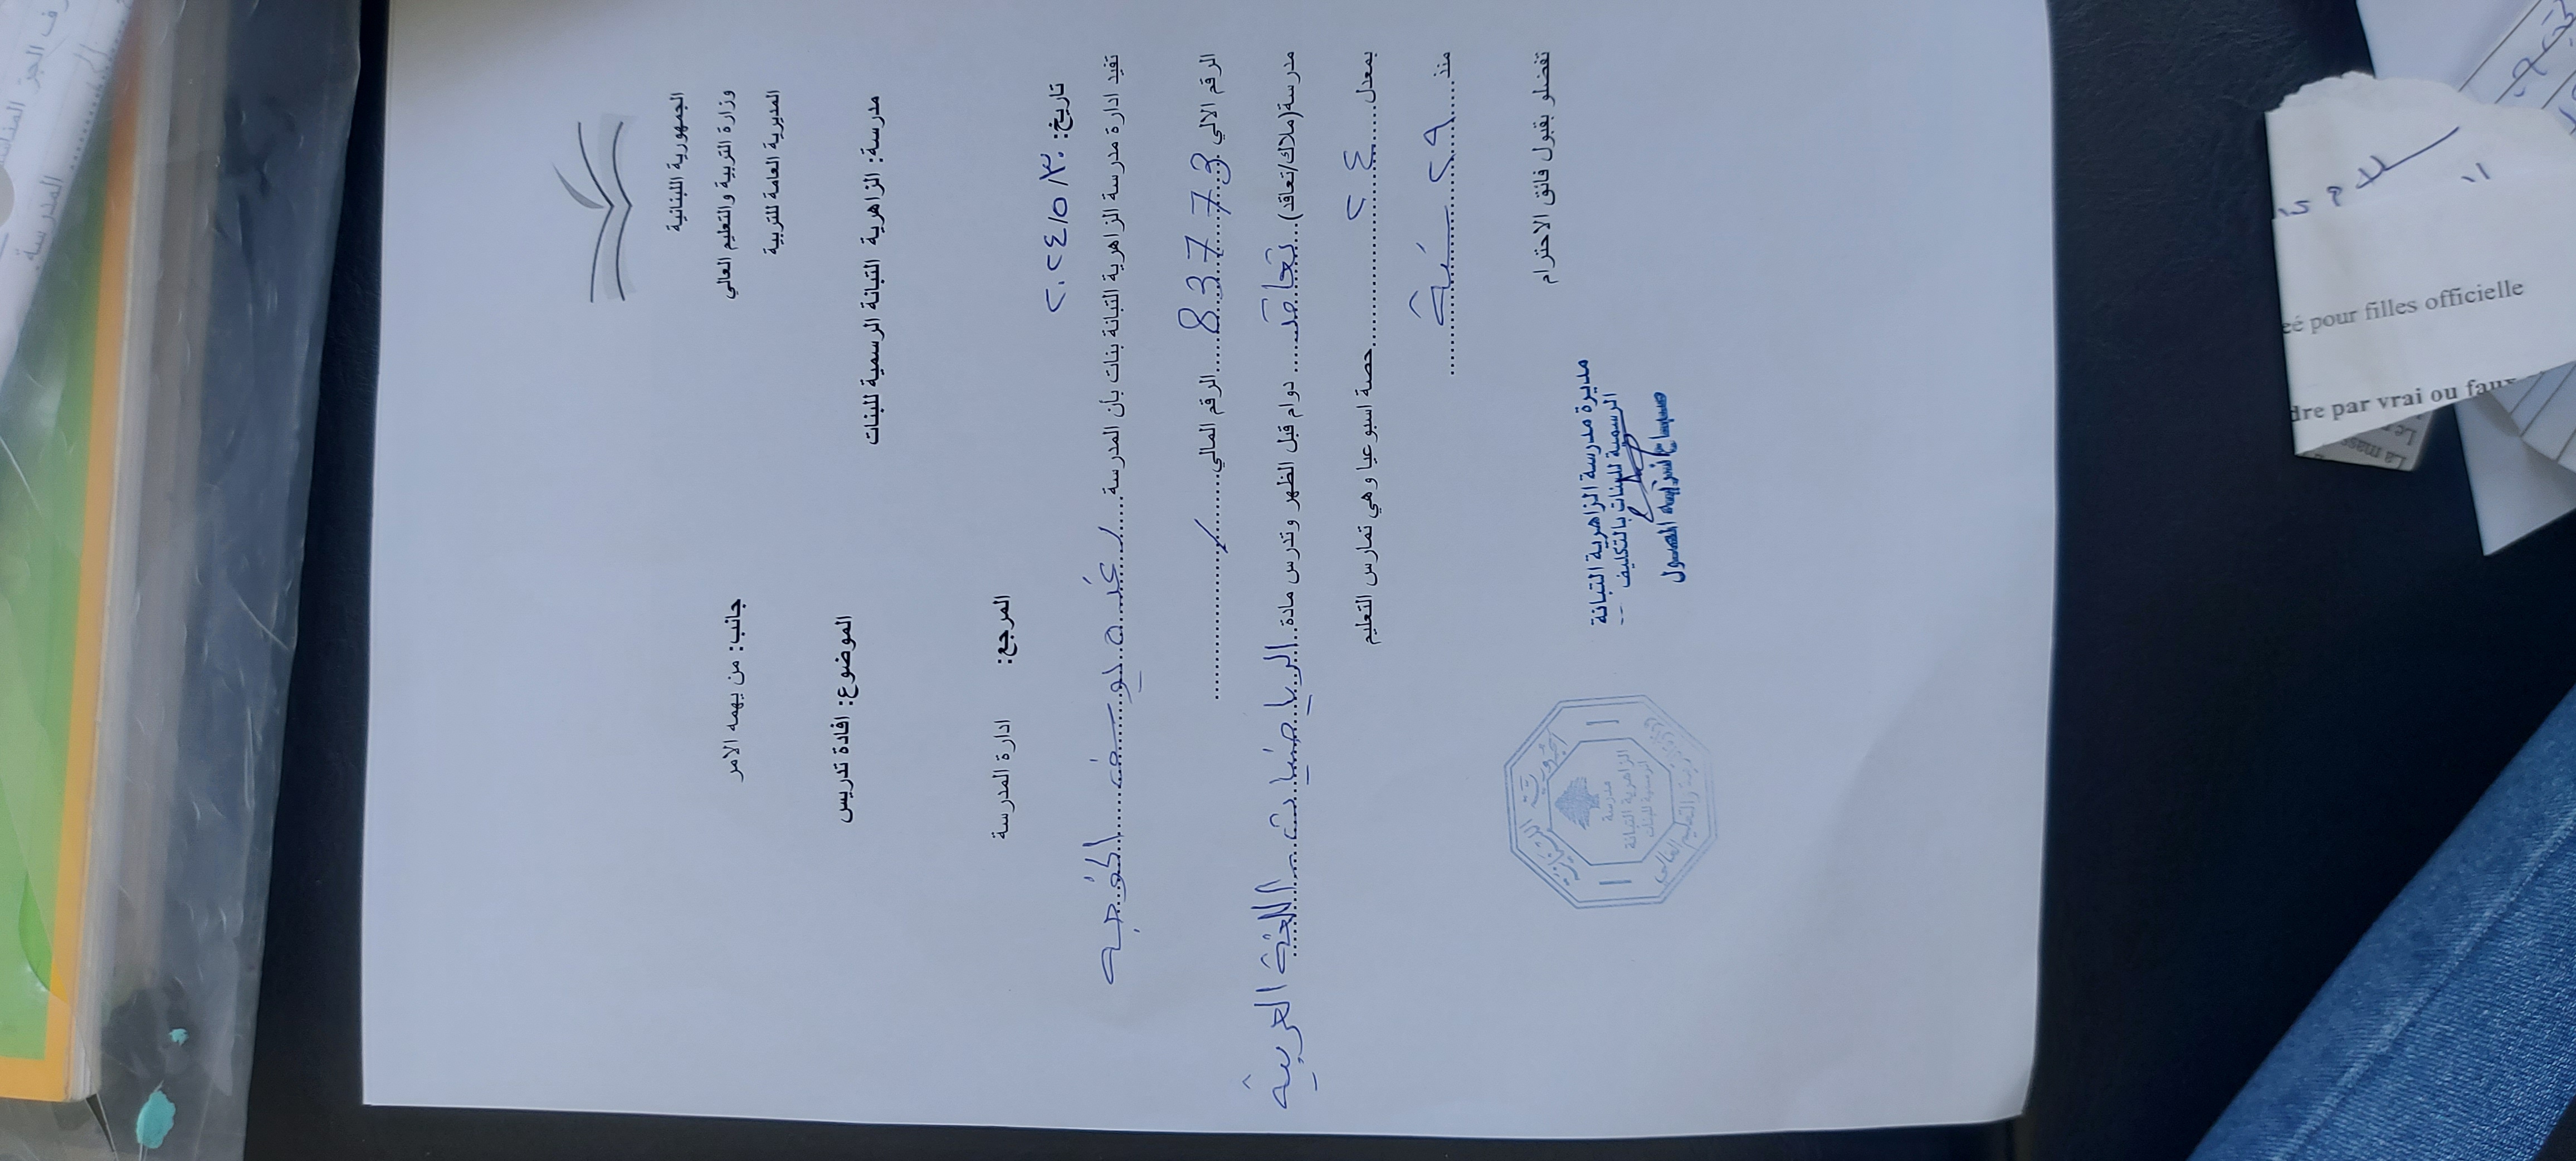 الجمهورية اللبنانية
وزارة التربية والتعليم العالي
المديرية العامة للتربية
جانب: من يهمه الامر
مدرسة: الزاهرية التبانة الرسمية للبنات
الموضوع: افادة تدريس
المرجع: ادارة المدرسة
تاريخ: ٢٠٢٤/٥/٣٠
تفيد ادارة مدرسة الزاهرية التبانة بنات بأن المدرسة رغد يوسف الخوجه
الرقم الالي 837773 الرقم المالي /
مدرسة(ملاك/تعاقد) تعاقد دوام قبل الظهر وتدرس مادة الرياضيات اللغة العربية
بمعدل ٢٤ حصة اسبوعيا وهي تمارس التعليم
منذ ٢٩ سنة
تفضلو بقبول فائق الاحترام
مديرة مدرسة الزاهرية التبانة
الرسمية للبنات بالتكليف
الجمهورية اللبنانية
مدرسة
الزاهرية التبانة
الرسمية للبنات
المدرسة
pour filles officielle
par vrai ou faux